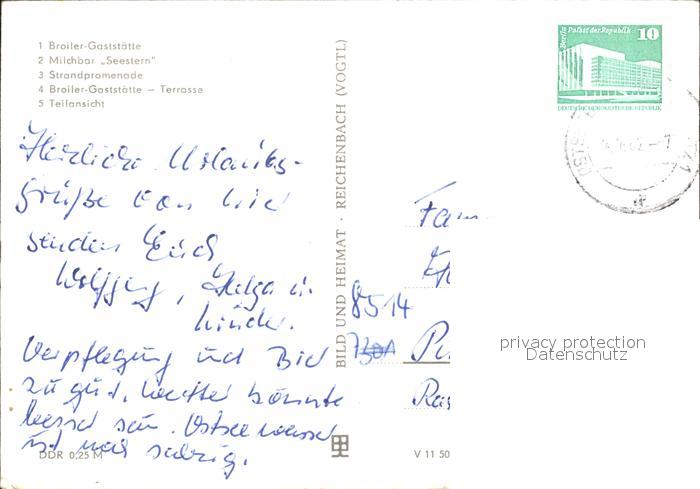 1 Broiler-Gaststätte
2 Milchbar „Seestern"
3 Strandpromenade
4 Broiler-Gaststätte — Terrasse
5 Teilansicht
Herzliche Urlaubs-
grüße von hier
senden Euch
Wolfgang, Helga u.
Kinder.
Verpflegung und Bier
zu gut, Wetter könnte
besser sein. Ostseewasser
ist noch salzig.
DDR 0,25 M
BILD UND HEIMAT · REICHENBACH (VOGTL)
V 11 50
Berlin Palast der Republik 10
DEUTSCHE DEMOKRATISCHE REPUBLIK
Fam
8514
7301
privacy protection
Datenschutz